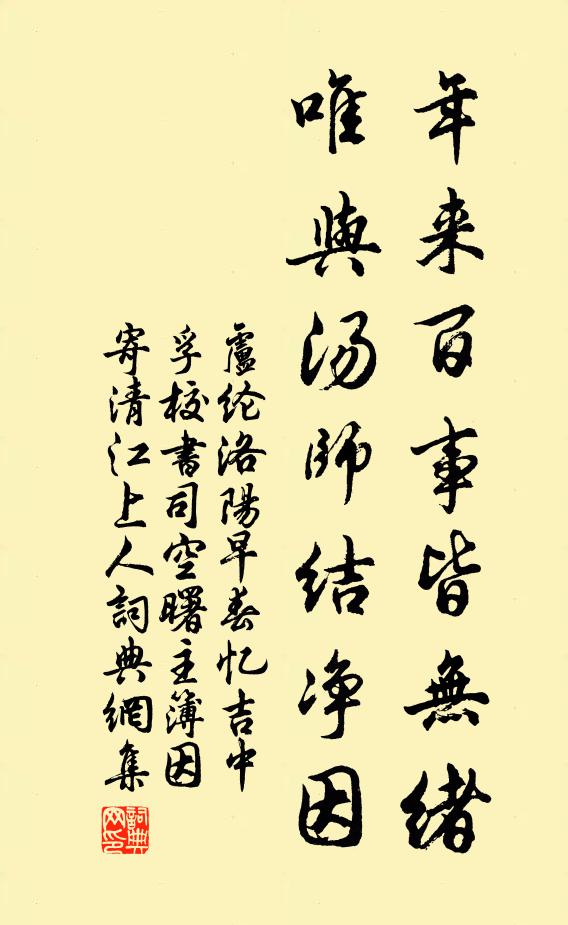 年来百事皆無緒
唯與汤師结净因
盧纶洛陽早春忆吉中
孚校書司空曙主簿因
寄清江上人詞典網集
詞典網印